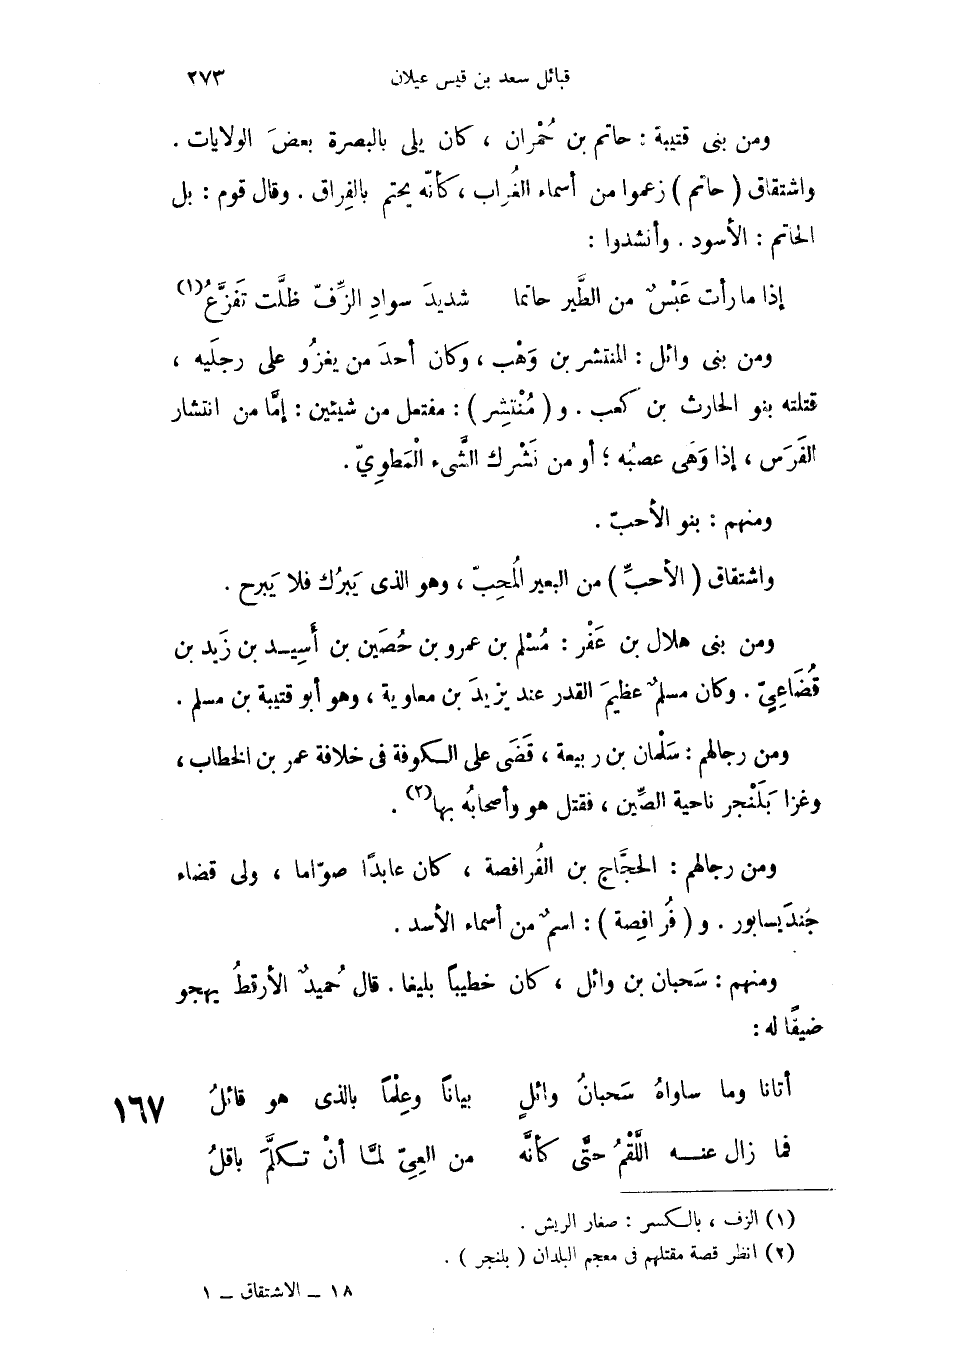 قبائل سعد بن قيس عيلان ٢٧٣
ومن بنى قتيبة : حاتم بن حُمْران ، كان يلى بالبصرة بعضَ الولايات .
واشتقاق ( حاتم ) زعموا من أسماء الغُراب ، كأنّه يحتم بالفِراق . وقال قوم : بل
الحاتم : الأسود . وأنشدوا :
إذا ما رأت عَبْسٌ من الطَّير حاتما شديدَ سوادِ الزِّفّ ظلَّت تَفَزَّعُ(١)
ومن بنى وائل : المنتشر بن وَهْب ، وكان أحدَ من يغزُو على رجلَيه ،
قتلته بنو الحارث بن كعب . و ( مُنْتشِر ) : مفتعل من شيئين : إمَّا من انتشار
الفَرَس ، إذا وَهَى عصبُه ؛ أو من نَشْرك الشَّىء الْمَطوِيّ .
ومنهم : بنو الأحبّ .
واشتقاق ( الأحبِّ ) من البعير الُمحِبّ ، وهو الذى يَبرُك فلا يَبرح .
ومن بنى هلال بن عَفْر : مُسْلم بن عمرو بن حُصَين بن أَسِيد بن زَيد بن
قُضَاعِيّ . وكان مسلمٌ عظيمَ القدر عند يزيدَ بن معاوية ، وهو أبو قتيبة بن مسلم .
ومن رجالهم : سَلْمان بن ربيعة ، قَضَى على الكوفة فى خلافة عمر بن الخطاب ،
وغزا بَلَنْجر ناحية الصِّين ، فقتل هو وأصحابُه بها(٢) .
ومن رجالهم : الحجَّاج بن الفُرافصة ، كان عابدًا صوّاما ، ولى قضاء
جُندَيسابور . و ( فُرافِصة ) : اسمٌ من أسماء الأسد .
ومنهم : سَحبان بن وائل ، كان خطيباً بليغا . قال حُميدٌ الأرقطُ يهجو
ضيفًا له :
أتانا وما ساواهُ سَحبانُ وائلٍ بيانًا وعِلْمًا بالذى هو قائلُ ١٦٧
فما زال عنه اللَّقْمُ حتَّى كأنَّه من العِيّ لمَّا أنْ تكلَّمَ باقلُ
(١) الزف ، بالكسر : صغار الريش .
(٢) انظر قصة مقتلهم فى معجم البلدان ( بلنجر ) .
١٨ – الاشتقاق – ١